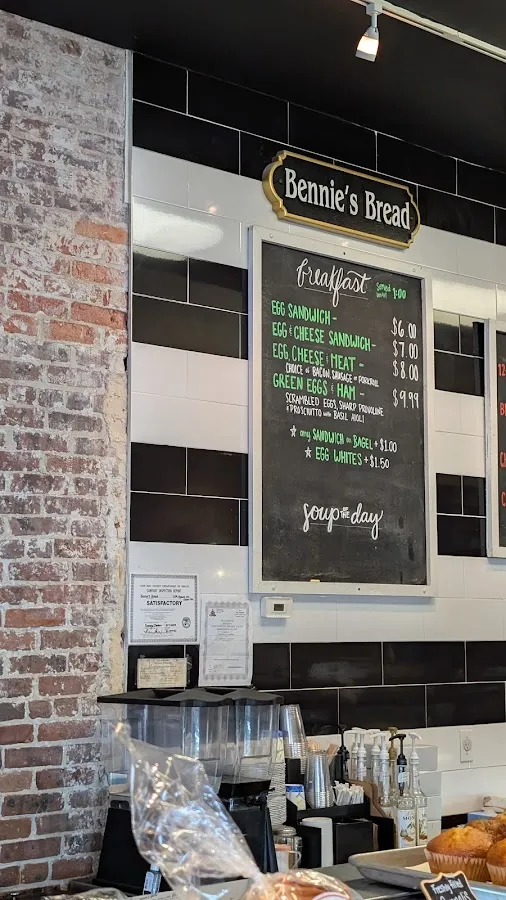 Bennie's Bread
breakfast
Served until 1:00
EGG SANDWICH - $6.00
EGG & CHEESE SANDWICH - $7.00
EGG, CHEESE & MEAT - $8.00
CHOICE of BACON, SAUSAGE or PORKROLL
GREEN EGGS & HAM - $9.99
SCRAMBLED EGGS, SHARP PROVOLONE
& PROSCIUTTO with BASIL AIOLI
★ any SANDWICH on BAGEL + $1.00
★ EGG WHITES + $1.50
soup OF THE day
SATISFACTORY